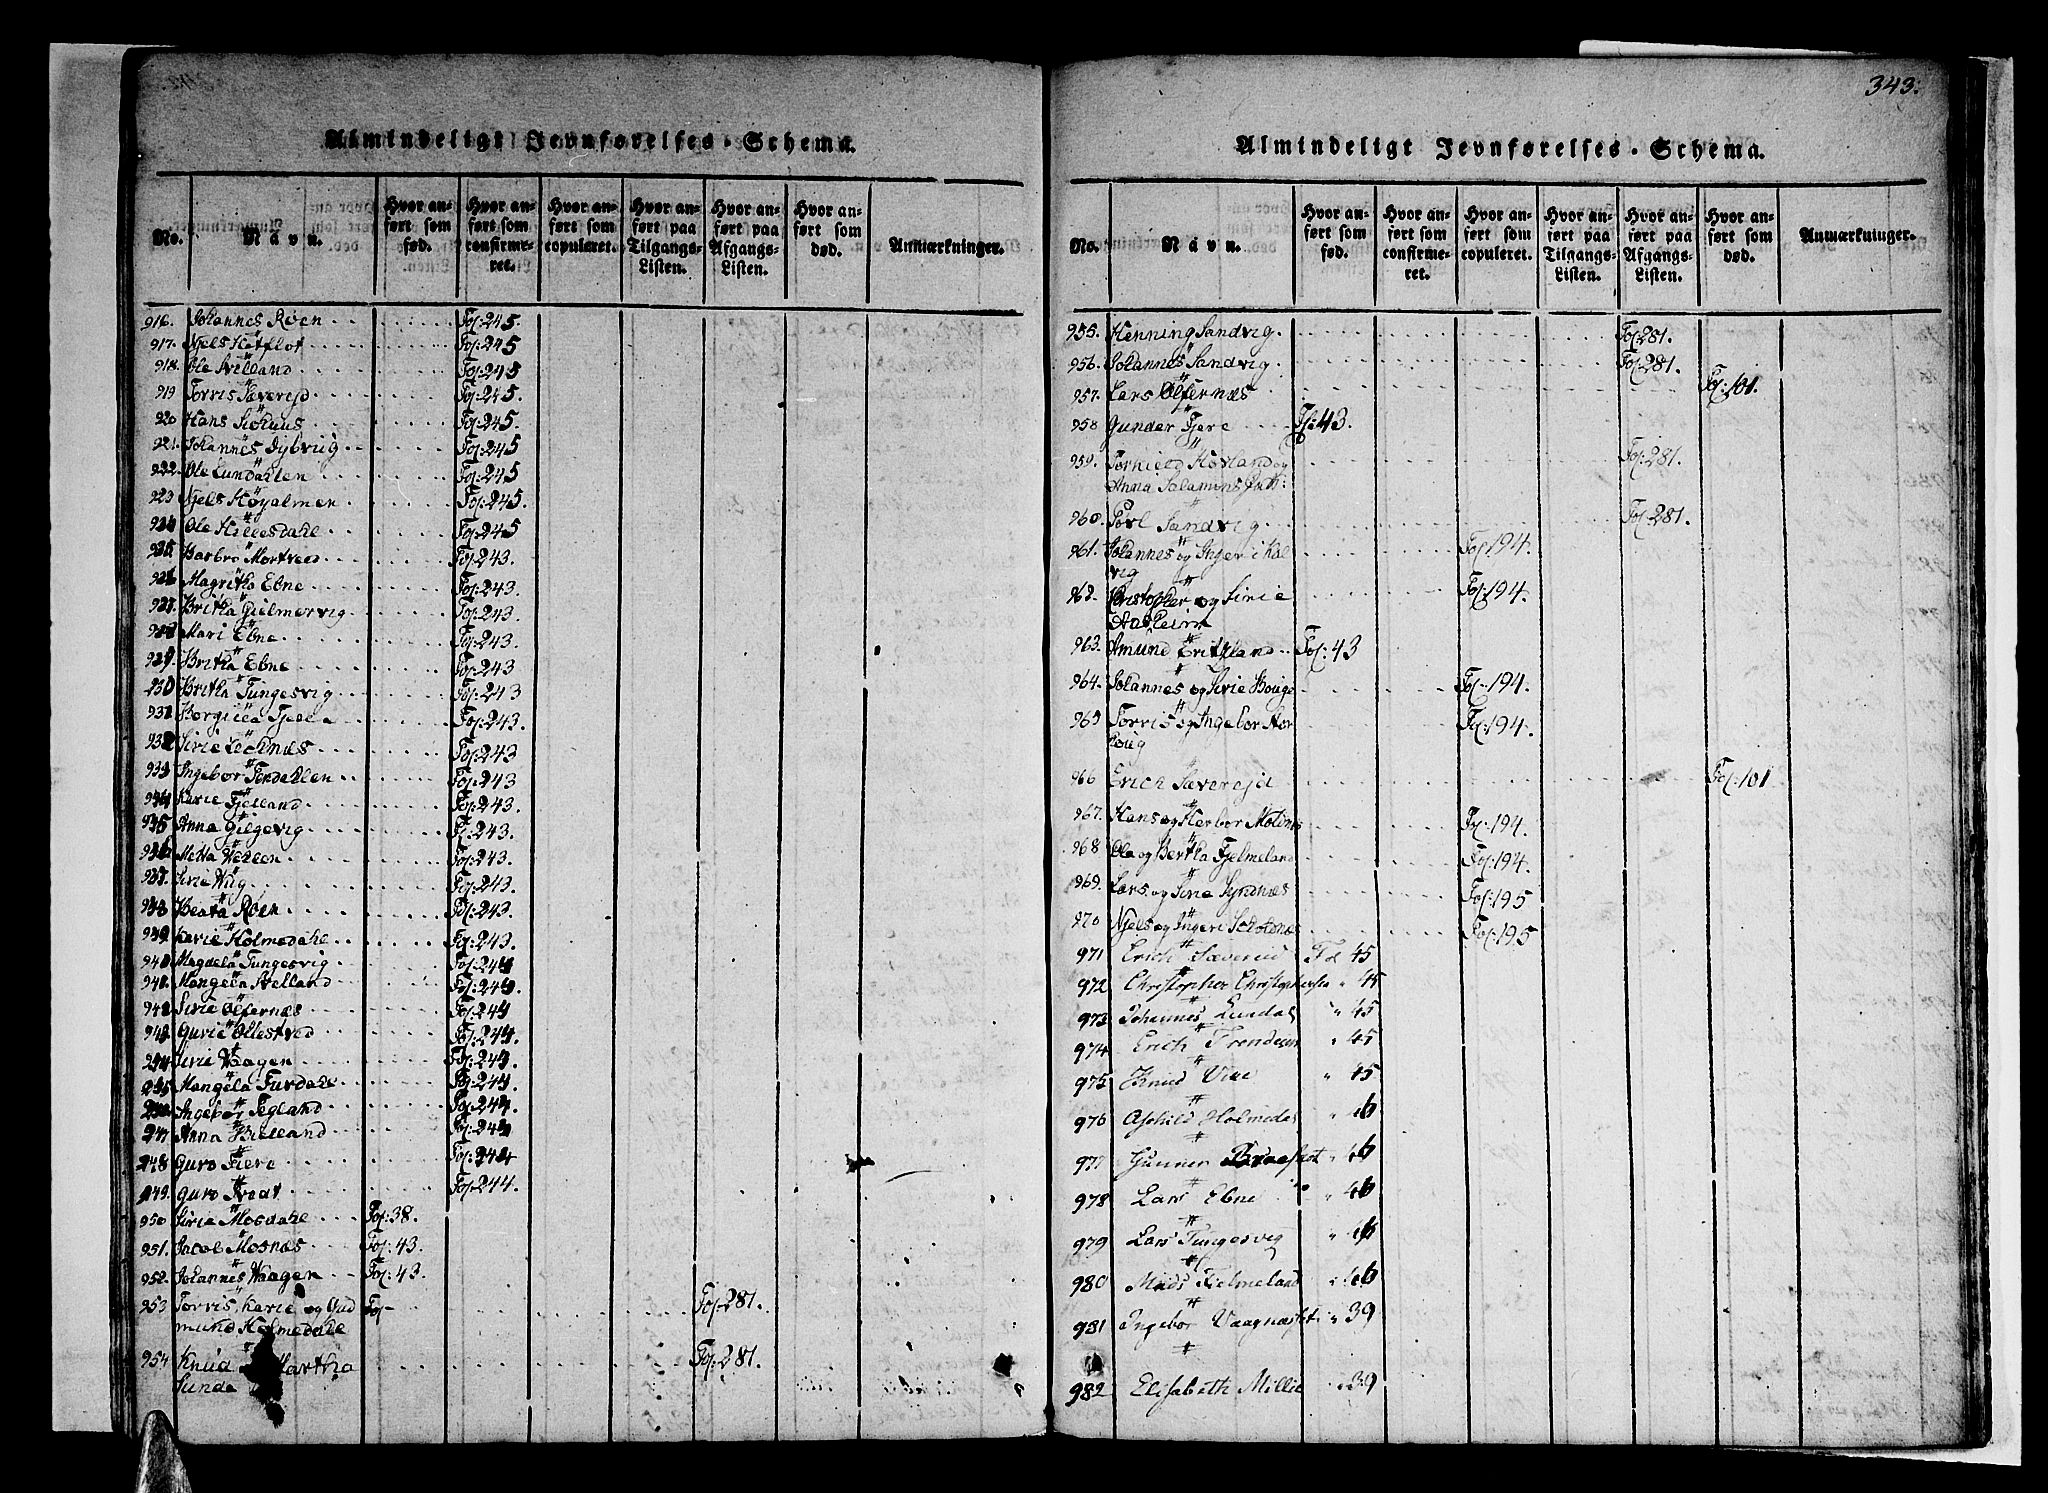 Almindeligt Jevnførelses-Schema.
No.
Navn.
Hvor anført som fød.
Hvor anført som confirmeret.
Hvor anført som copuleret.
Hvor anført paa Tilgangs-Listen.
Hvor anført paa Afgangs-Listen.
Hvor anført som død.
Anmærkninger.
916. Johannes Roen Fol: 245.
917. Njels Hetflot Fol: 245
918. Ole Svilland Fol: 245
919 Torris Sævereid Fol: 245.
920 Hans Fol: 245.
921. Johannes Dybvig Fol: 245
922. Ole Lundahlen Fol: 245
923 Njels Höyalmen Fol: 245.
924 Ole Hillesdahl Fol: 245
925. Barbro Mortved Fol: 243.
926 Magritha Ebne Fol: 243.
927. Britha Gjelmervig Fol: 243
928 Mari Ebne Fol: 243.
929. Britha Ebne Fol: 243
930 Britha Tungesvig Fol: 243
931 Borgilla Fjella Fol: 243.
932 Sirie Fol: 243
933 Ingebor Fordahlen Fol: 243
934 Karie Fjelland Fol: 243.
935 Anna Gilgevig Fol: 243.
936 Metta Fol: 243.
937. Sirie Wiig Fol: 243.
938 Beata Roen Fol: 243.
939 Karie Holmedahl Fol: 243.
940 Magdela Tungesvig Fol: 244
941. Mangela Svelland Fol: 244.
942 Sirie Ølfernæs Fol: 244
943 Gurie Ollestved Fol: 244.
944 Sirie Waagen Fol: 244.
945 Mangela Furdahl Fol: 244
946 Ingebor Tegland Fol: 244.
947 Anna Bielland Fol: 244
948 Guro Fiere Fol: 244
949. Guro Fol: 244.
950 Sirie Mosdahl Fol: 38.
951. Jacob Mosnæs Fol: 43.
952. Johannes Waagen Fol: 43.
953 Torris, Karie og Gud Fol- Fol: 281.
mund Holmedahl
954 Knud Martha Fol: 281.
Sunde
343.
Almindeligt Jevnførelses-Schema.
No.
Navn.
Hvor anført som fød.
Hvor anført som confirmeret.
Hvor anført som copuleret.
Hvor anført paa Tilgangs-Listen.
Hvor anført paa Afgangs-Listen.
Hvor anført som død.
Anmærkninger.
955. Henning Sandvig Fol: 281.
956. Johannes Sandvig Fol: 281.
957. Lars Ølfernæs Fol: 101.
958 Gunder Fjere Fol: 43.
959. Torkield Hovland og Fol: 281.
Anna Salamons Datt:
960. Povl Sandvig Fol: 281.
961. Johannes og Inger i Kal Fol: 194.
vig
962. Cristopher og Sirie Fol: 194.
Aasheim
963. Amund Eritzland Fol: 43
964. Johannes og Sirie Houge Fol: 194.
965 Torris og Ingebor Hor Fol: 194.
houg
966 Erich Sævereid Fol: 101
967. Hans og Herbor Molnes Fol: 194.
968 Ola og Bertha Fjelmeland Fol: 194.
969. Lars og Sirie Syndnæs Fol: 195
970 Njels og Ingeri Fol: 195
971 Erich Sæverud Fol 45
972 Christopher Christophersen " 45
973 Johannes Lundal " 45
974 Erich " 45
975 Knud Vae " 45
976 Aschild Holmedal " 46
977 Gunner " 46
978 Lars Ebne " 46
979 Lars Tungesvig " 46
980 Mads Fielmeland " 46
981 Ingebor " 39
982 Elisabeth Millie " 39